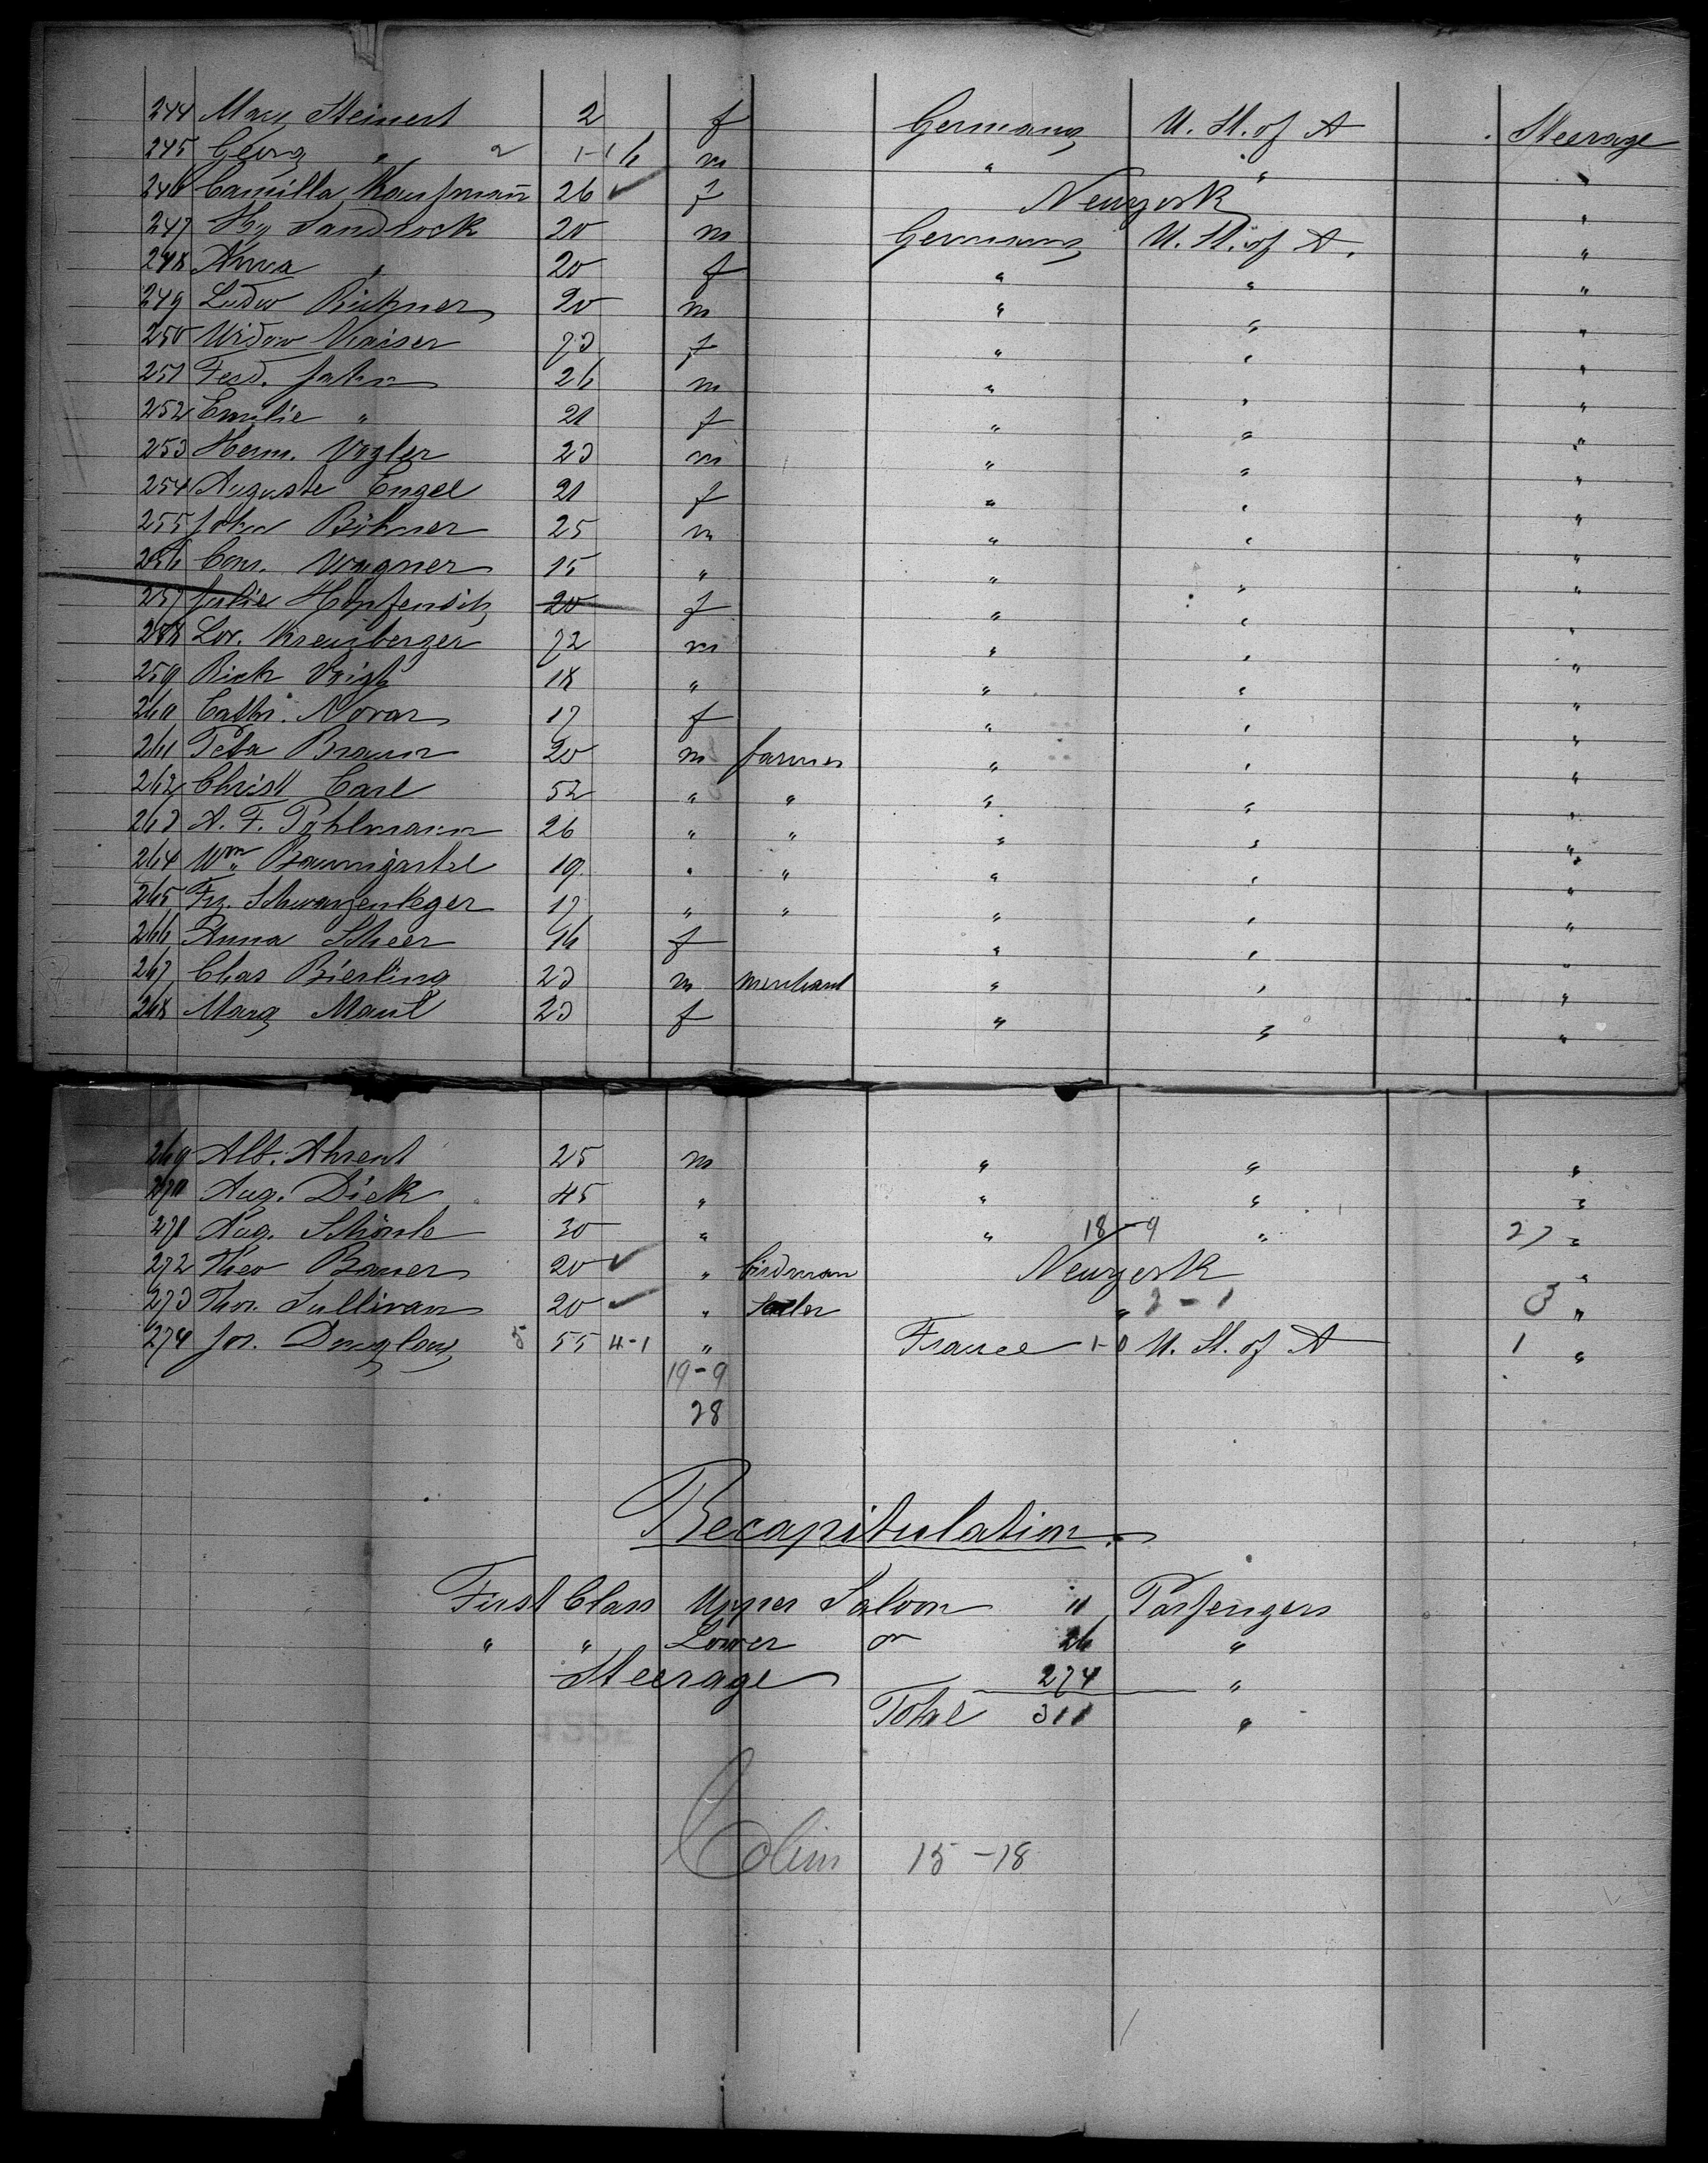 244 Mary Steinert 2 f Germany U. St. of A Steerage
245 Georg " 2 1-1 6 m " " "
246 Camilla Kaufmann 26 ✓ f Newyork "
247 Hy Sandrock 20 m Germany U. St. of A. "
248 Anna " 20 f " " "
249 Ludw 20 m " " "
250 Widow Kaiser 73 f " " "
251 Ferd. Jahn 26 m " " "
252 Emilie " 21 f " " "
253 Herm. Vogler 23 m " " "
254 Auguste Engel 21 f " " "
255 John Böhmer 25 m " " "
256 Con. Wagner 15 " " " "
257 Julie Hopfensitz 20 f " " "
258 Lor. Kreuzberger 72 m " " "
259 Rich Voigt 18 " " " "
260 Cathr. Novar 17 f " " "
261 Peta Braun 20 m farmer " " "
262 Christ Carl 52 " " " " "
263 A. F. Pöhlmann 26 " " " " "
264 Wm Baumgartel 19 " " " " "
265 Frz. Schwarzenleger 17 " " " " "
266 Anna Scheer 16 f " " "
267 Chas Bierling 23 m merchant " " "
268 Marg Maul 23 f " " "
269 Alb. Ahrent 25 m " " "
270 Aug. Dick 45 " " " "
271 Aug. Schönle 30 " " 18-9 " 27 "
272 Theo Bauer 20 ✓ " birdman Newyork "
273 Thos. Sullivan 20 ✓ " " 2-1 3 "
274 Jos. Douglous 5 55 4-1 " France 1-0 U. St. of A 1 "
19-9
28
Recapitulation.
First Class Upper Saloon 11 Passengers
" " Lower do 26 "
Steerage 274 "
Total 311 "
15-18